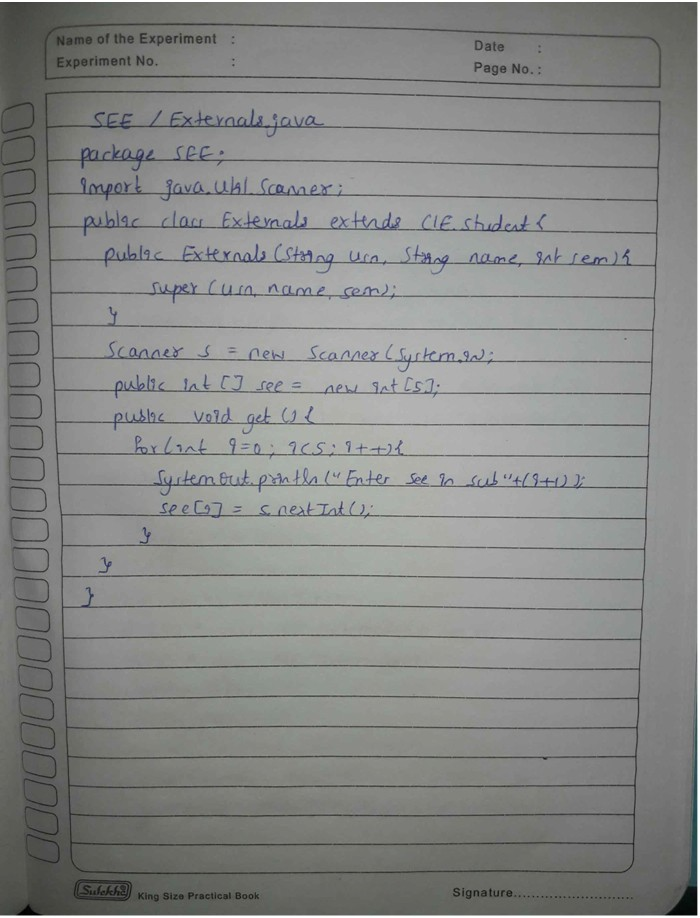 Name of the Experiment :
Date :
Experiment No. :
Page No. :
SEE / Externals.java
package SEE;
import java.util.Scanner;
public class Externals extends CIE.student{
public Externals (String usn, String name, int sem){
super (usn, name, sem);
}
Scanner s = new Scanner (System.in);
public int [] see = new int [5];
public void get () {
for (int i=0; i<5; i++){
System.out.println ("Enter see in sub"+(i+1));
see[i] = s.nextInt();
}
}
}
Sulekha King Size Practical Book
Signature...........................